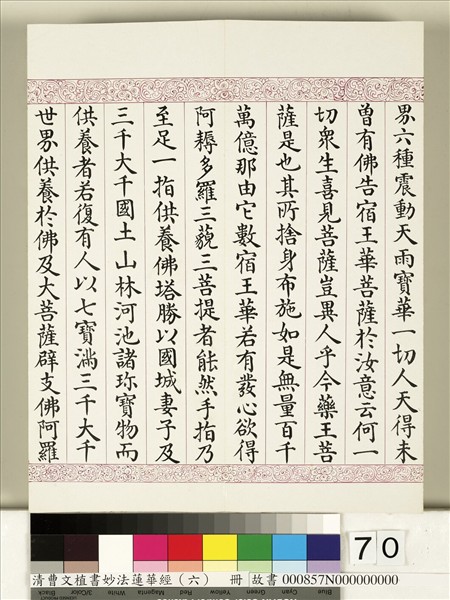 界六種震動天雨寶華一切人天得未
曾有佛告宿王華菩薩於汝意云何一
切衆生喜見菩薩豈異人乎今藥王菩
薩是也其所捨身布施如是無量百千
萬億那由它數宿王華若有發心欲得
阿耨多羅三藐三菩提者能然手指乃
至足一指供養佛塔勝以國城妻子及
三千大千國土山林河池諸珎寶物而
供養者若復有人以七寶滿三千大千
世界供養於佛及大菩薩辟支佛阿羅
70
清曹文植書妙法蓮華經（六） 冊 故書 000857N000000000
Blue Cyan Green Yellow Red Magenta White 3/Color Black